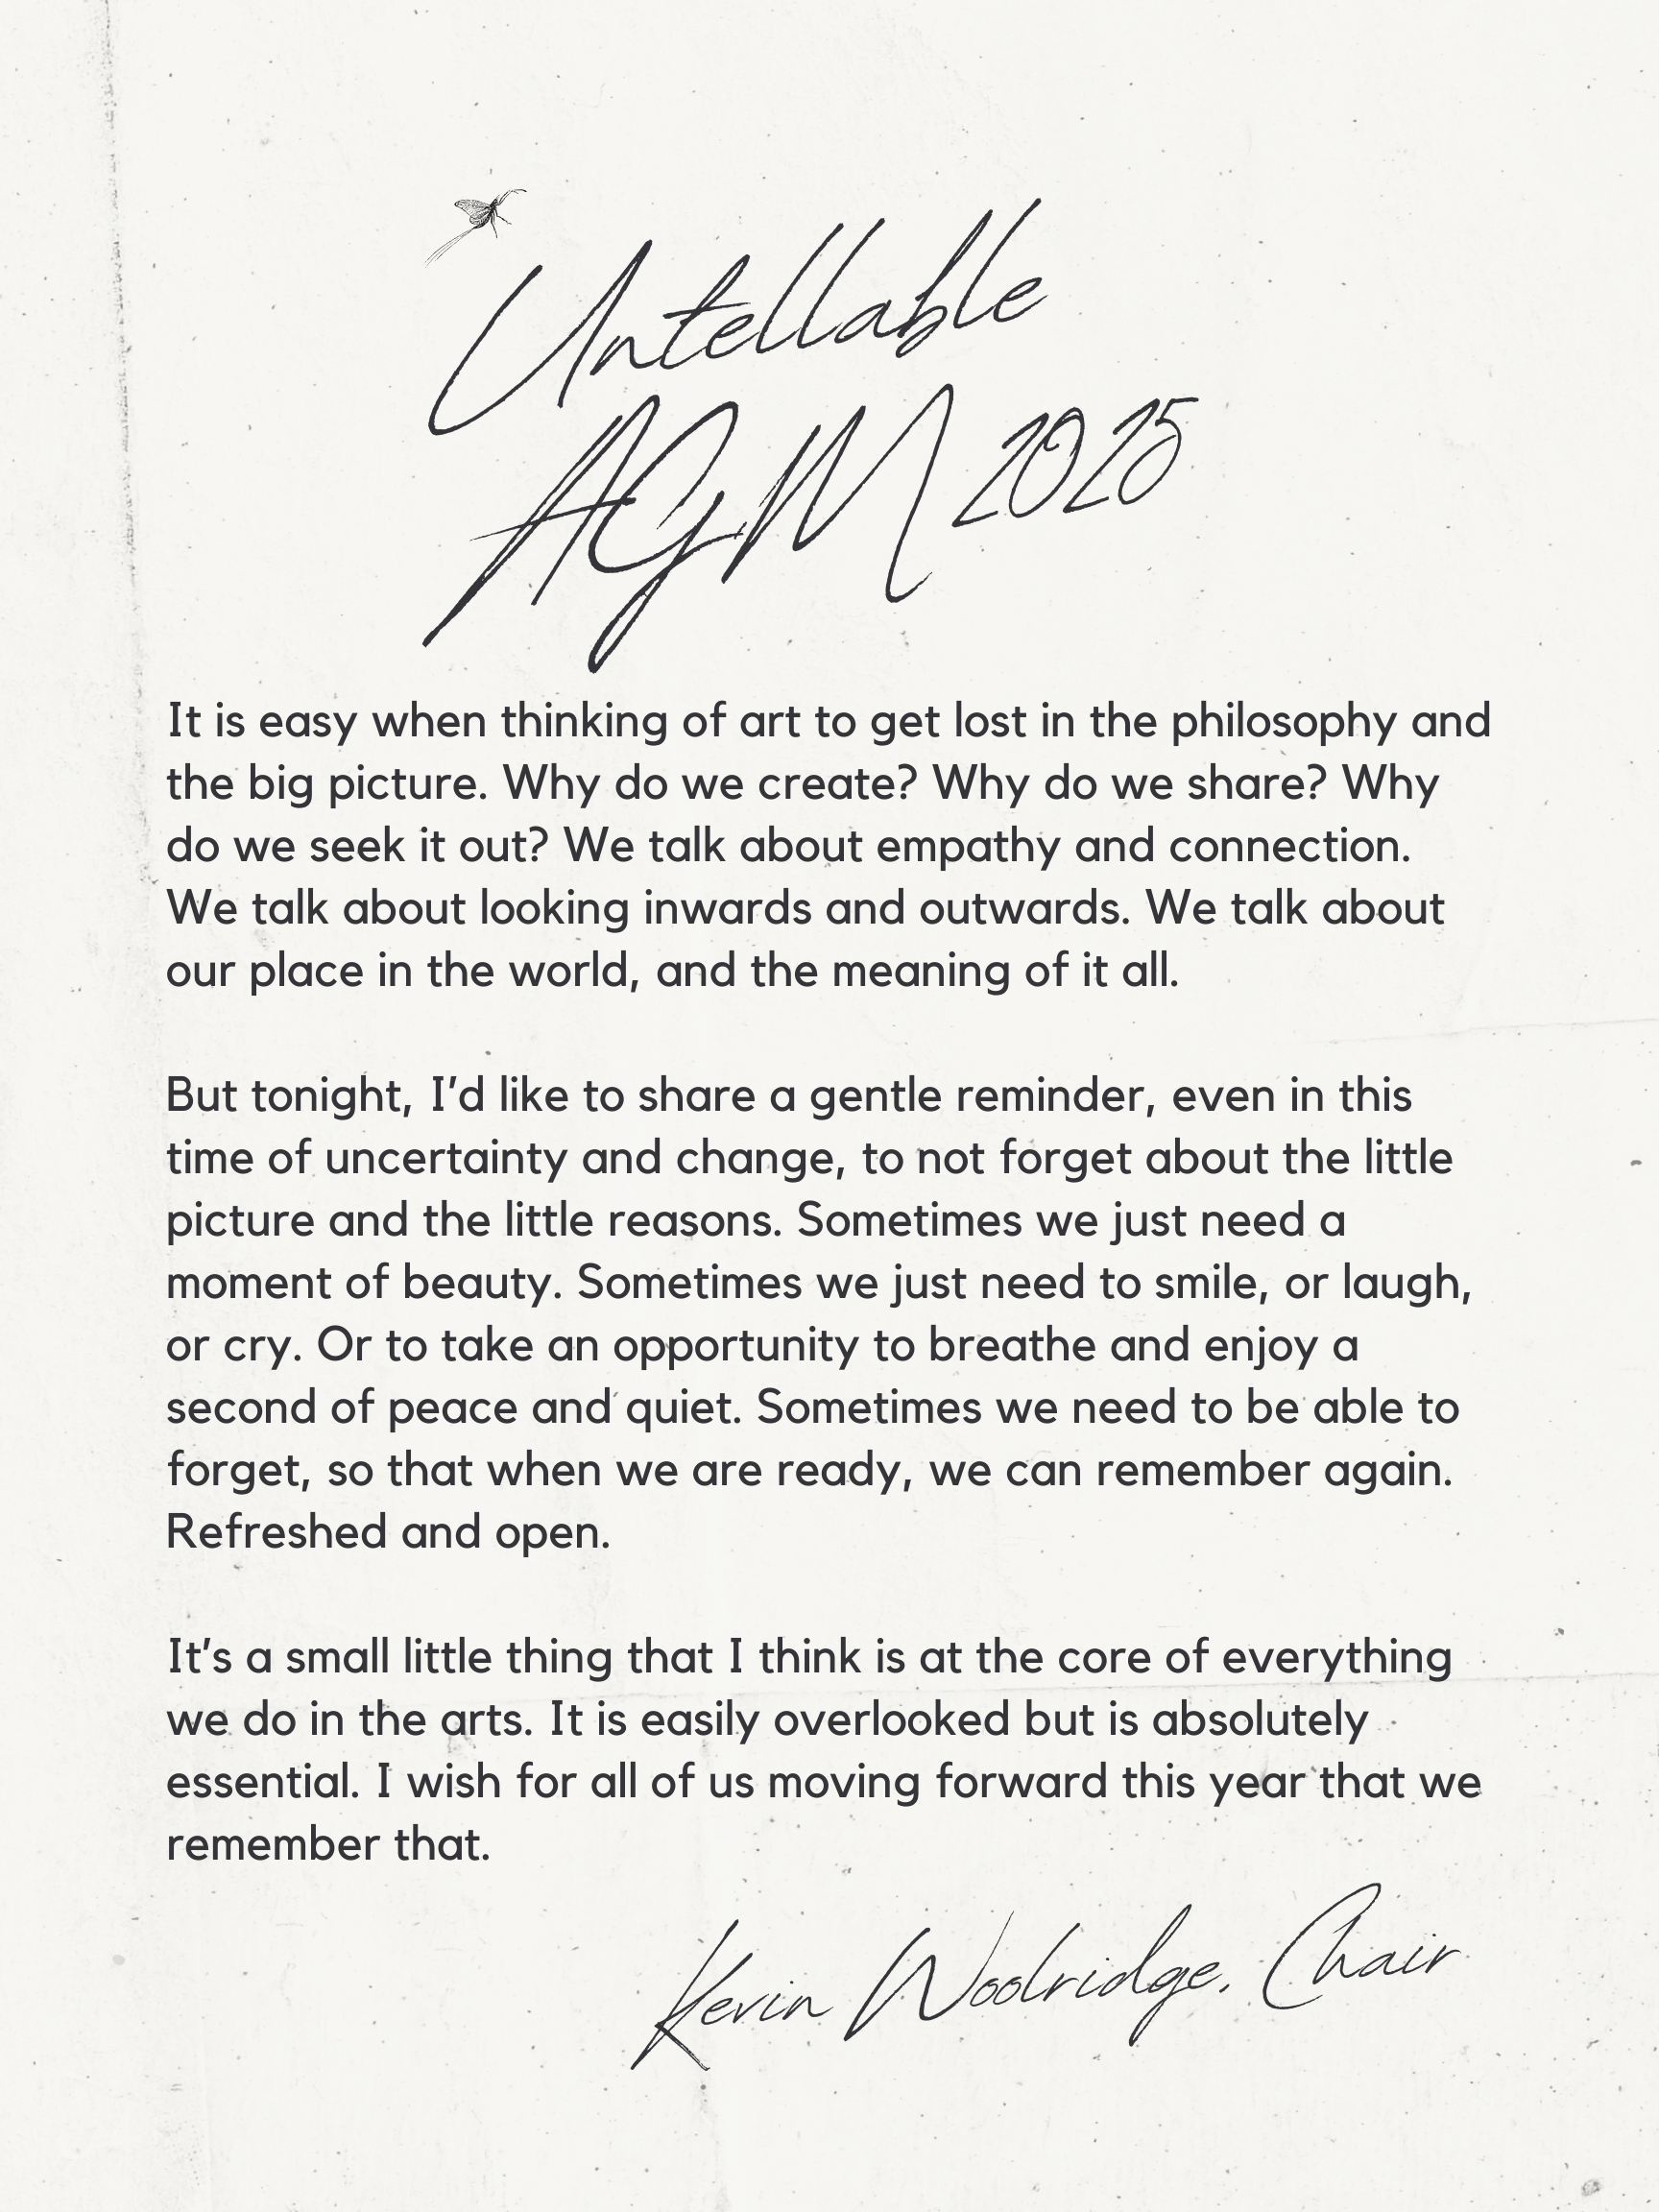 Untellable
AGM 2025
It is easy when thinking of art to get lost in the philosophy and
the big picture. Why do we create? Why do we share? Why
do we seek it out? We talk about empathy and connection.
We talk about looking inwards and outwards. We talk about
our place in the world, and the meaning of it all.
But tonight, I’d like to share a gentle reminder, even in this
time of uncertainty and change, to not forget about the little
picture and the little reasons. Sometimes we just need a
moment of beauty. Sometimes we just need to smile, or laugh,
or cry. Or to take an opportunity to breathe and enjoy a
second of peace and quiet. Sometimes we need to be able to
forget, so that when we are ready, we can remember again.
Refreshed and open.
It’s a small little thing that I think is at the core of everything
we do in the arts. It is easily overlooked but is absolutely
essential. I wish for all of us moving forward this year that we
remember that.
Kevin Woolridge, Chair